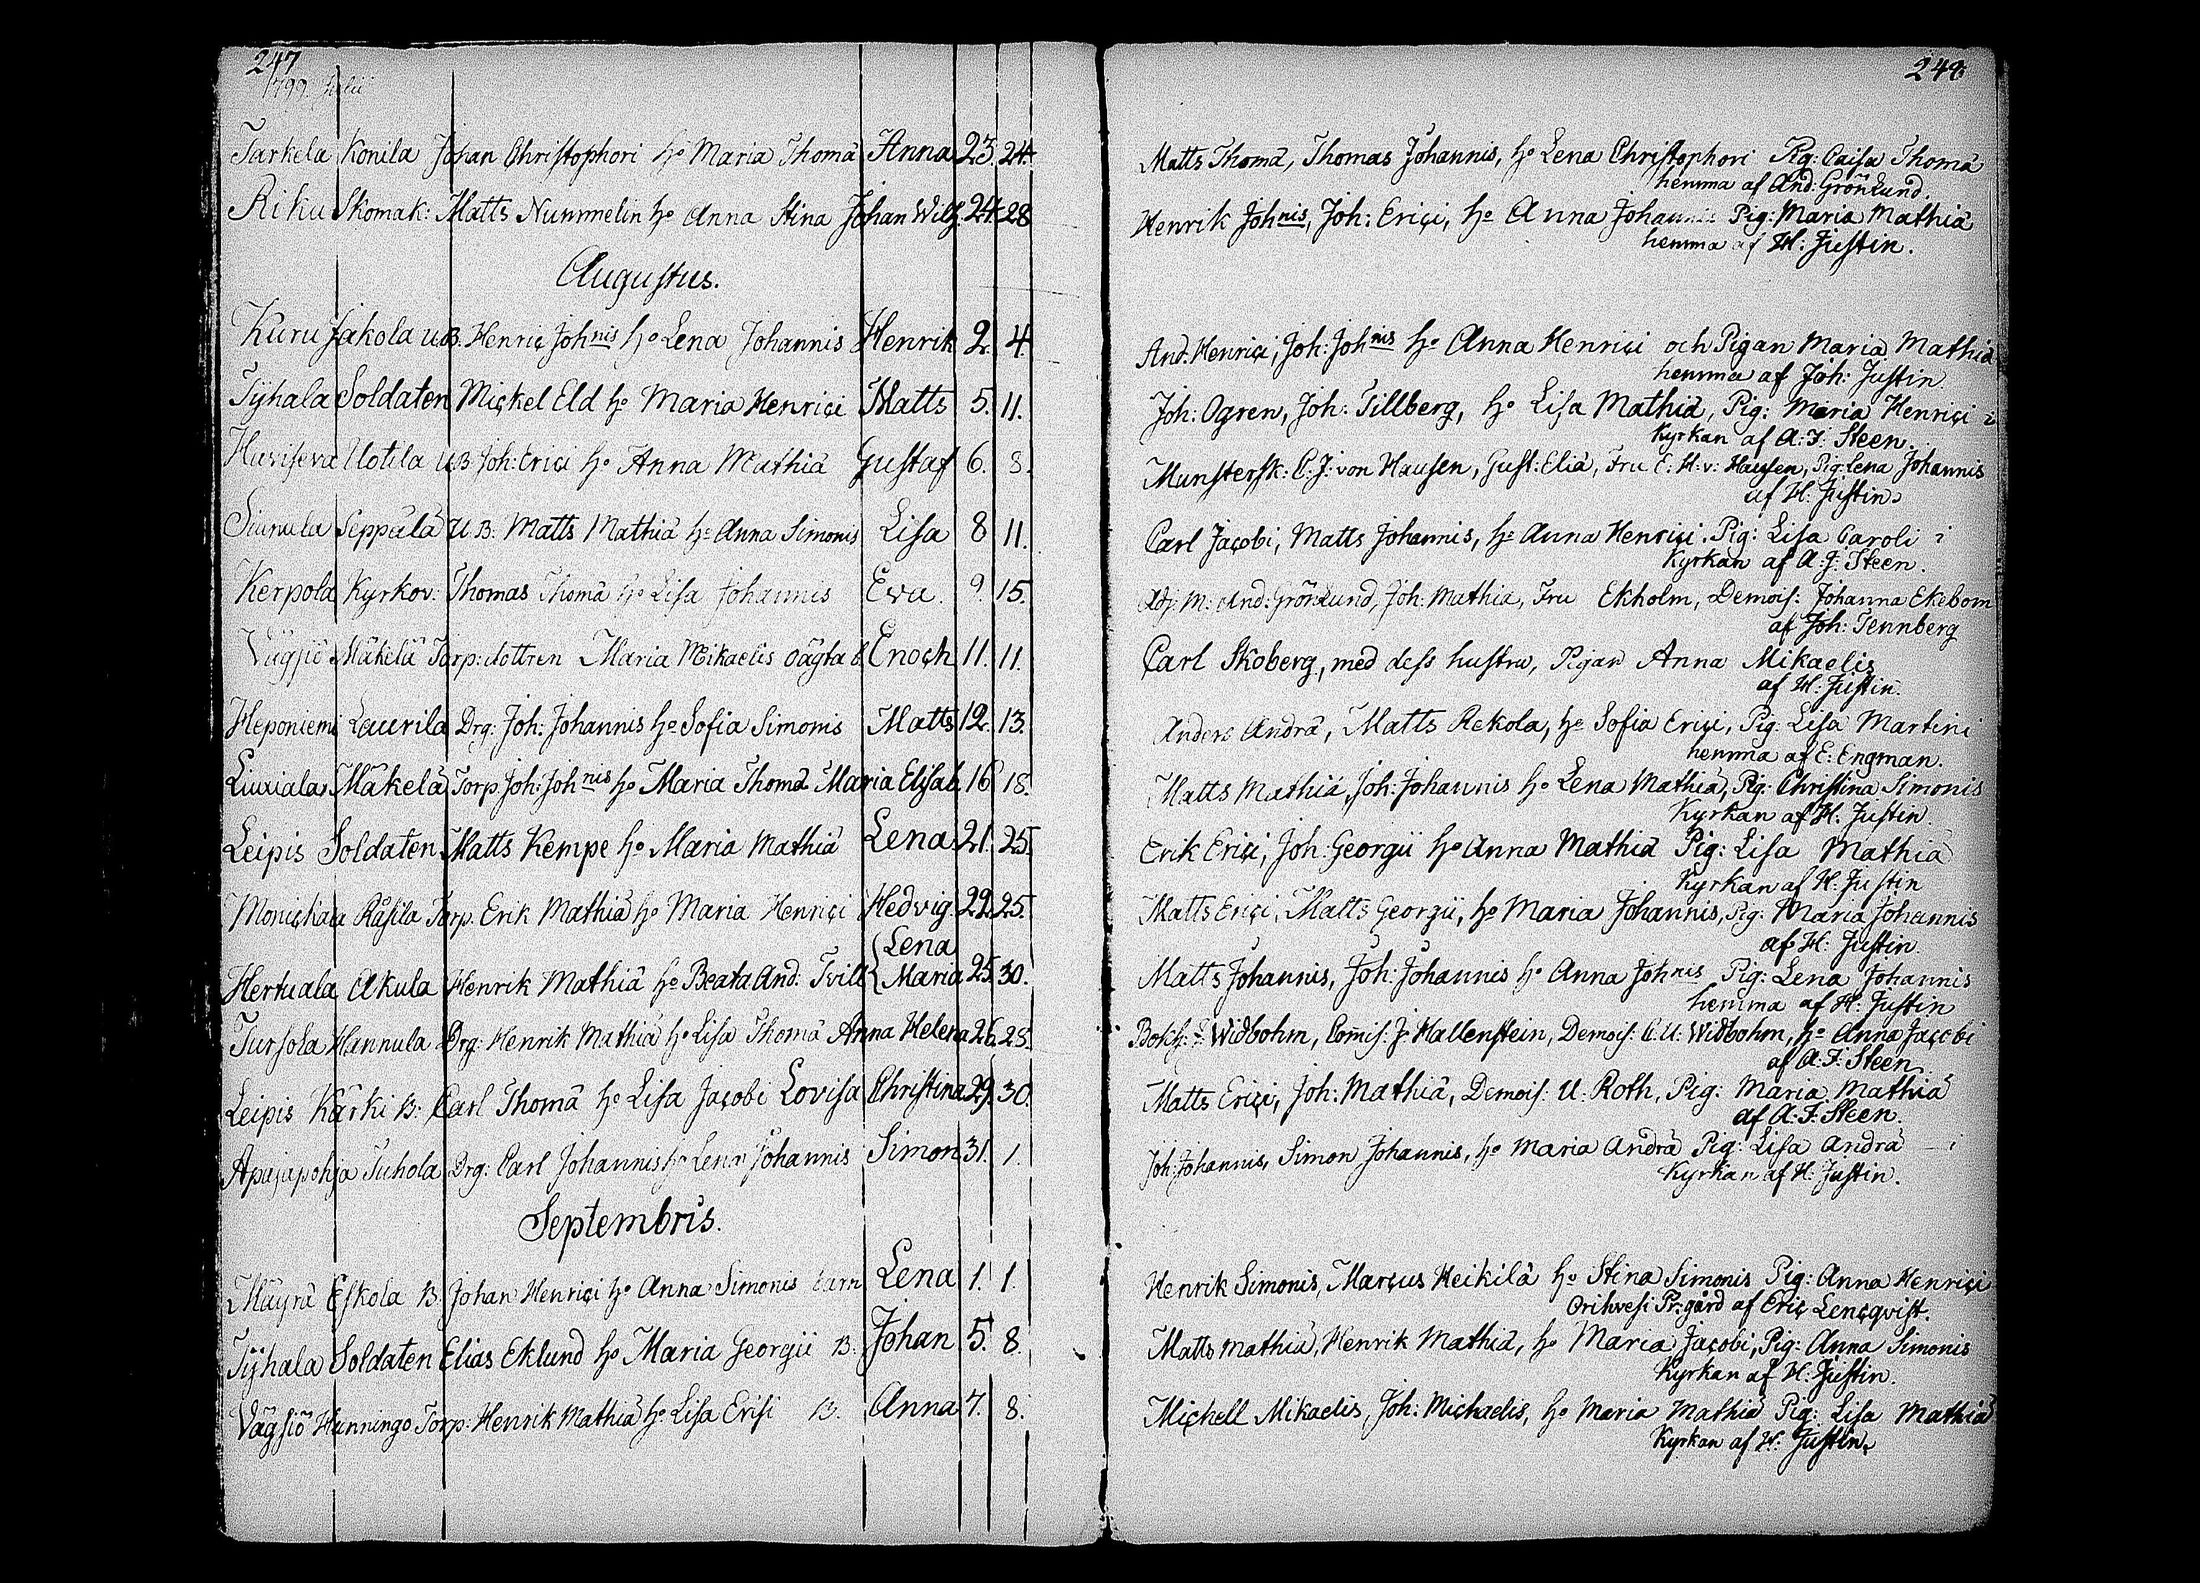 247
1799 Julii
Tarkela Konila Johan Christophori ho Maria Thomä Anna 23. 24.
Riku Skomak: Matts Nummelin ho Anna Stina Johan Wilh. 24. 28
Augustus.
Kuru Jakola U.B. Henric Johnis ho Lena Johannis Henrik 2. 4.
Tÿhala Soldaten Mickel Eld ho Maria Henrici Matts 5. 11.
Uotila U B. Joh: Erici ho Anna Mathiä Gustaf 6. 8.
Siurula Seppälä U B. Matts Mathiä ho Anna Simonis Lisa 8 11.
Kerpola Kyrkov: Thomas Thomä ho Lisa Johannis Eva. 9. 15.
Mäkelä Torp: dottren Maria Mikaelis oägta b. Enoch 11. 11.
Heponiemi Laurila Drg: Joh: Johannis ho Sofia Simonis Matts 12. 13.
Mäkelä Torp. Joh: Johnis ho Maria Thomä Maria Elisab. 16 18.
Leipis Soldaten Matts Kempe ho Maria Mathiä Lena 21. 25.
Torp. Erik Mathiä ho Maria Henrici Hedvig. 22. 25.
{Lena
Hertuala Akula Henrik Mathiä ho Beata And: Tvill {Maria 25. 30.
Tursola Hannula Drg: Henrik Mathiä ho Lisa Thomä Anna Helena 26. 28.
Leipis Kärki B: Carl Thomä ho Lisa Jacobi Lovisa Christina 29. 30.
Apajapohja Tuhola Drg: Carl Johannis ho Lena Johannis Simon 31. 1.
Septembris.
Mäyrä Eskola B. Johan Henrici ho Anna Simonis barn Lena 1. 1.
Tÿhala Soldaten Elias Eklund ho Maria Georgii B. Johan 5. 8.
Vägsiö Hanningo Torp: Henrik Mathiä ho Lisa Erisi B. Anna 7. 8.
248
Matts Thomä, Thomas Johannis, ho Lena Christophori Pig: Caisa Thomä
hemma af And: Grönlund.
Henrik Johnis, Joh: Erici, ho Anna Johannis Pig: Maria Mathiä
hemma af H: Justin.
And: Henrici, Joh: Johnis ho Anna Henrici och Pigan Maria Mathiä
hemma af Joh: Justin
Joh: Ogren, Joh: Tillberg, ho Lisa Mathiä, Pig: Maria Henrici i
Kyrkan af A: J: Steen.
Munstersk: C. J: von Hausen, Gust: Eliä, Fru E: H: v: Hausen, Pig: Lena Johannis
af H: Justin.
Carl Jacobi, Matts Johannis, ho Anna Henrici. Pig: Lisa Caroli i
Kyrkan af A: J: Steen.
Adj: M: And: Grönlund, Joh: Mathiä, Fru Ekholm, Demois: Johanna Ekebom
af Joh: Tennberg
Carl Skoberg, med dess hustru, Pigan Anna Mikaelis
af H: Justin.
Anders Andrä, Matts Rekola, ho Sofia Erici, Pig: Lisa Martini
hemma af E: Engman.
Matts Mathiä, Joh: Johannis ho Lena Mathiä, Pig: Christina Simonis
Kyrkan af H. Justin.
Erik Erici, Joh: Georgii ho Anna Mathiä Pig: Lisa Mathiä
Kyrkan af H: Justin
Matts Erici, Matts Georgii, ho Maria Johannis, Pig: Maria Johannis
af H: Justin.
Matts Johannis, Joh: Johannis ho Anna Johnis Pig: Lena Johannis
hemma af H: Justin
Bokh: Widbohm, Comis: J: Hallenstein, Demois: C. U: Widbohm, ho Anna Jacobi
af A: J: Steen.
Matts Erici, Joh: Mathiä, Demois: U: Roth, Pig: Maria Mathiä
af A: J: Steen.
Joh: Johannis, Simon Johannis, ho Maria Andrä Pig: Lisa Andrä i
Kyrkan af H: Justin.
Henrik Simonis, Marcus Heikilä ho Stina Simonis Pig: Anna Henrici
Orihvesi Pr:gård af Eric Lencqvist.
Matts Mathiä, Henrik Mathiä, ho Maria Jacobi, Pig: Anna Simonis
Kyrkan af H: Justin.
Mickell Mikaelis, Joh: Michaelis, ho Maria Mathiä Pig: Lisa Mathiä
Kyrkan af H: Justin.